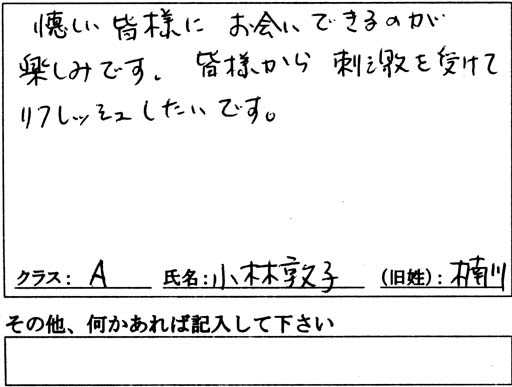 懐しい皆様に お会いできるのが
楽しみです。 皆様から 刺激を受けて
リフレッシュしたいです。
クラス: A 氏名:小林敦子 (旧姓):楠川
その他、何かあれば記入して下さい